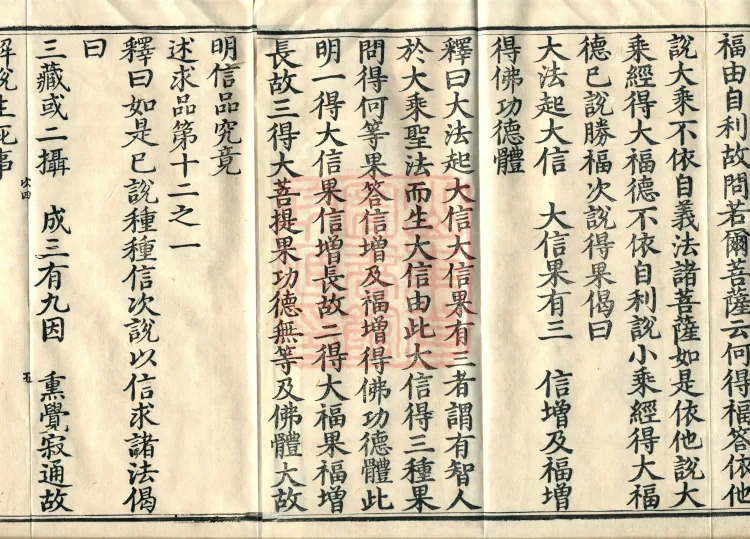 福由自利故問若爾菩薩云何得福答依他
說大乘不依自義法諸菩薩如是依他說大
乘經得大福德不依自利說小乘經得大福
德已說勝福次說得果偈曰
大法起大信 大信果有三 信增及福增
得佛功德體
釋曰大法起大信大信果有三者謂有智人
於大乘聖法而生大信由此大信得三種果
問得何等果答信增及福增得佛功德體此
明一得大信果信增長故二得大福果福增
長故三得大菩提果功德無等及佛體大故
明信品究竟
述求品第十二之一
釋曰如是已說種種信次說以信求諸法偈
曰
三藏或二攝 成三有九因 熏覺寂通故
解說生死事